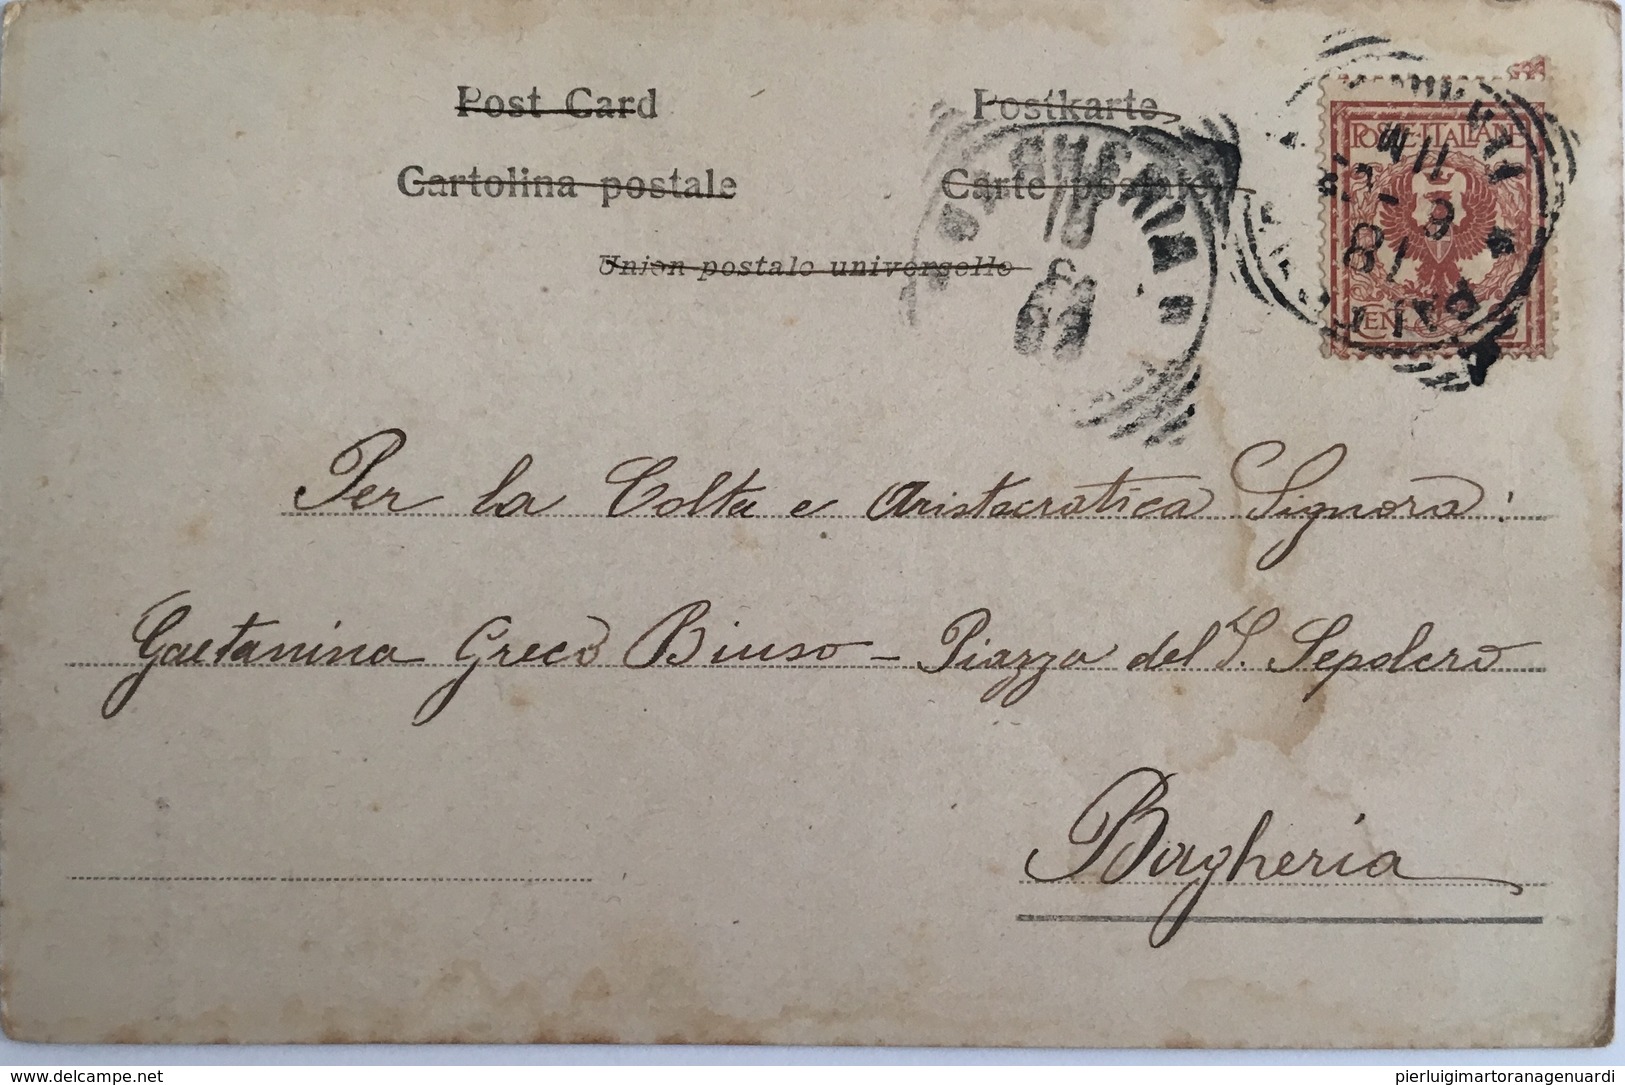 Post Card
Postkarte
Cartolina postale
Carte postale
Union postale universelle
POSTE ITALIANE
BAGHERIA
Per la Colta e Aristocratica Signora:
Gaetanina Greco Biuso - Piazza del S. Sepolcro
Bagheria
delcampe.net
pierluigimartoranagenuardi